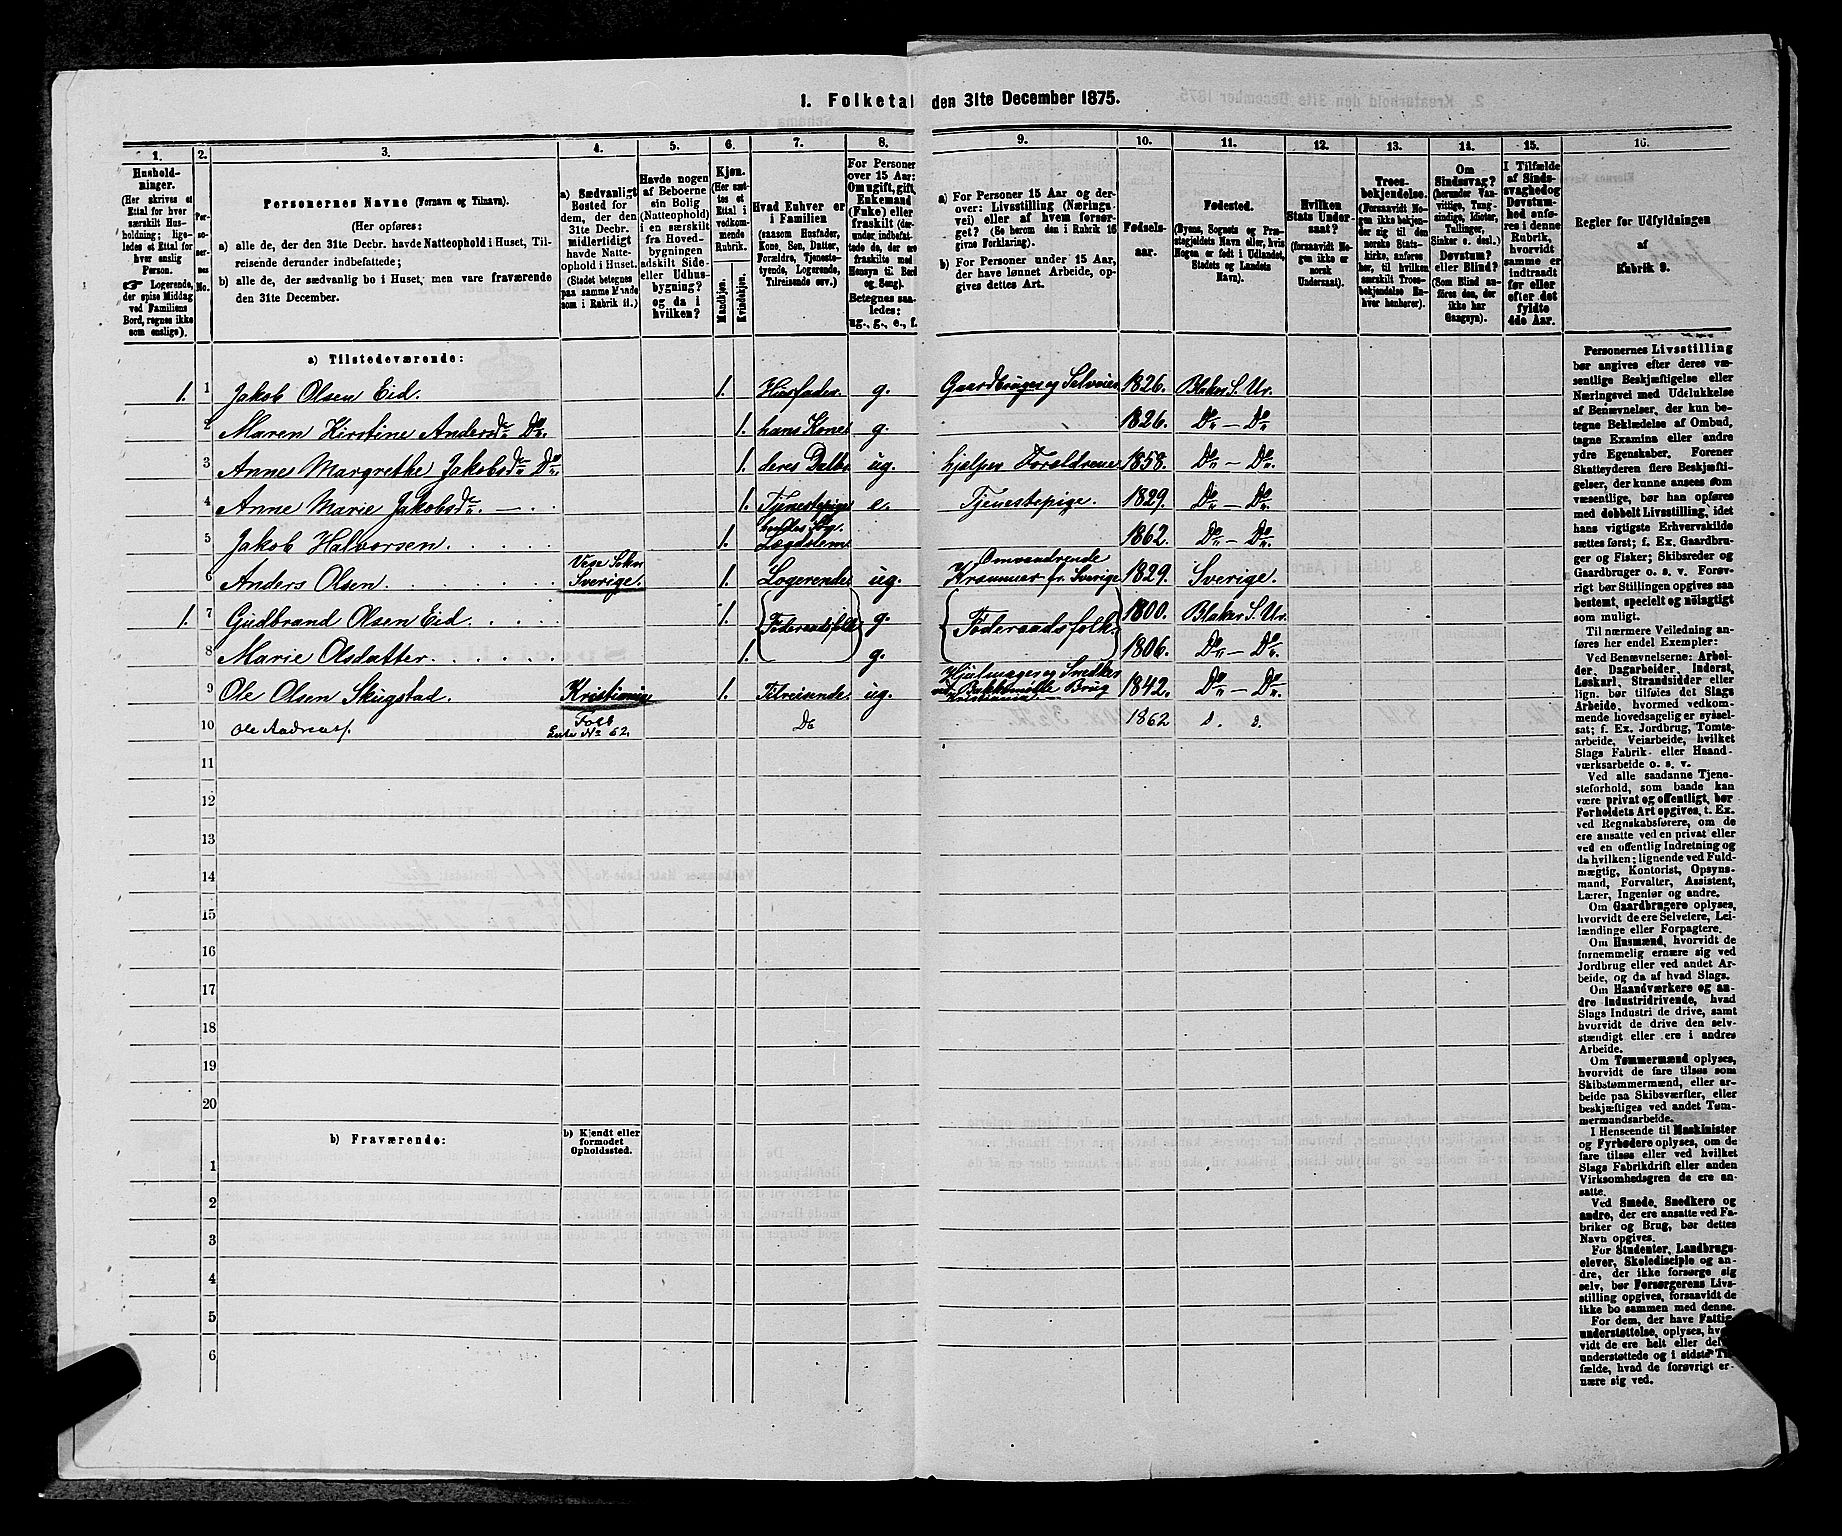 1. Folketal den 31te December 1875.
1. 2. 3. 4. 5. 6. 7. 8. 9. 10. 11. 12. 13. 14. 15. 16.
Hushold-
ninger.
(Her skrives et
Ettal for hver
særskilt Hus-
holdning; lige-
ledes et Ettal for
hver enslig
Person.
☞ Logerende,
der spise Middag
ved Familiens
Bord, regnes ikke
som enslige).
Per-
soner-
nes
No.
Personernes Navne (Fornavn og Tilnavn).
(Her opføres:
a) alle de, der den 31te Decbr. havde Natteophold i Huset, Til-
reisende derunder indbefattede;
b) alle de, der sædvanlig bo i Huset, men vare fraværende
den 31te December.
a) Sædvanligt
Bosted for
dem, der den
31te Decbr.
midlertidigt
havde Natte-
ophold i Huset.
(Stedet betegnes
paa samme Maade
som i Rubrik 11.)
Havde nogen
af Beboerne
sin Bolig
(Natteophold)
i en særskilt
fra Hoved-
bygningen
adskilt Side-
eller Udhus-
bygning?
og da i
hvilken?
Kjøn.
(Her sæt-
tes et
Ettal i
vedkom-
mende
Rubrik.
Mandkjøn.
Kvindekjøn.
Hvad Enhver er
i Familien
(saasom Husfader,
Kone, Søn, Datter,
Forældre, Tjeneste-
tyende, Logerende,
Tilreisende osv.)
For Personer
over 15 Aar:
Om ugift, gift,
Enkemand
(Enke) eller
fraskilt (der-
under indbefat-
tede de, der ere
fraskilte med
Hensyn til Bord
og Seng).
Betegnes saa-
ledes:
ug., g., e., f.
a) For Personer 15 Aar og der-
over: Livsstilling (Nærings-
vei) eller af hvem forsør-
get? (Se herom den i Rubrik 16
givne Forklaring).
b) For Personer under 15 Aar,
der have lønnet Arbeide, op-
gives dettes Art.
Fødsels-
aar.
Fødested.
(Byens, Sognets og Præ-
stegjeldets Navn eller, hvis
Nogen er født i Udlandet,
Stedets og Landets
Navn).
Hvilken
Stats Under-
saat?
(forsaavidt No-
gen ikke er
norsk
Undersaat).
Troes-
bekjendelse.
(Forsaavidt No-
gen ikke bekjen-
der sig til den
norske Stats-
kirke, anføres
her, til hvilken
særskilt Troes-
bekjendelse En-
hver henhører).
Om
Sindssvag?
(herunder Van-
vittige, Tung-
sindige, Idioter,
Tullinger,
Sinker o. desl.)
Døvstum?
eller Blind?
(Som Blind an-
føres den, der
ikke har
Gangsyn).
I Tilfælde
af Sinds-
svaghed og
Døvstum-
hed anfø-
res i denne
Rubrik,
hvorvidt
samme er
indtraadt
før eller
efter det
fyldte
4de Aar.
Regler for Udfyldningen
af
Rubrik 9.
a) Tilstedeværende:
1. 1 Jakob Olsen Eid. 1. Husfader. g. Gaardbruger og Selveier 1826. Blaker S. Ur.
2 Maren Kirstine Andersdr. Do. 1. hans Kone g. 1826. Do — Do
3 Anne Margrethe Jakobsdr. Do. 1. deres Datter ug. hjelper Forældrene 1858. Do — Do
4 Anne Marie Jakobsdr. 1. Tjenestepige e. Tjenestepige. 1829. Do — Do
5 Jakob Halvorsen. 1. Lægdslem 1862. Do — Do
6 Anders Olsen. Sverige. 1. Logerende ug. Omvandrende
Kræmmer fr. Sverige 1829. Sverige.
1. 7 Gudbrand Olsen Eid. 1. Føderaadsfolk g. Føderaadsfolk. 1800. Blaker S. Ur.
8 Marie Olsdatter. 1. g. 1806. Do — Do
9 Ole Olsen Skugstad. Kristiania 1. Tilreisende. ug. Hjulmager og Snedker
Brug 1842. Do — Do
10 Ole Andreas No 62. Do 1862 d. d.
11
12
13
14
15
16
17
18
19
20
b) Fraværende: b) Kjendt eller
formodet
Opholdssted.
1
2
3
4
5
6
Personernes Livsstilling
bør angives efter deres væ-
sentlige Beskjæftigelse eller
Næringsvei med Udelukkelse
af Benævnelser, der kun be-
tegne Beklædelse af Ombud,
tagne Examina eller andre
ydre Egenskaber. Forener
Skatteyderen flere Beskjæfti-
gelser, der kunne ansees som
væsentlige, bør han opføres
med dobbelt Livsstilling, idet
hans vigtigste Erhvervskilde
sættes først; f. Ex. Gaardbru-
ger og Fisker; Skibsreder og
Gaardbruger o. s. v. Forøv-
rigt bør Stillingen opgives saa
bestemt, specielt og nøiagtigt
som muligt.
Til nærmere Veiledning an-
føres her endel Exempler:
Ved Benævnelserne: Arbei-
der, Dagarbeider, Inderst,
Løskarl, Strandsidder eller
lign. bør tilføies det Slags
Arbeide, hvormed vedkom-
mende hovedsagelig er syssel-
sat; f. Ex. Jordbrug, Tomte-
arbeide, Veiarbeide, hvilket
Slags Fabrik- eller Haand-
værksarbeide o. s. v.
Ved alle saadanne Tjene-
steforhold, som baade kan
være privat og offentligt, bør
Forholdets Art opgives, t. Ex.
ved Regnskabsførere, om de
ere ansatte ved en privat eller
ved en offentlig Indretning og
da hvilken; lignende ved Fuld-
mægtig, Kontorist, Opsyns-
mand, Forvalter, Assistent,
Lærer, Ingeniør og andre.
Om Gaardbrugere oplyses,
hvorvidt de ere Selveiere, Lei-
lændinge eller Forpagtere.
Om Husmænd, hvorvidt de
fornemmelig ernære sig ved
Jordbrug eller ved andet Ar-
beide, og da af hvad Slags.
Om Haandværkere og an-
dre Industridrivende, hvad
Slags Industri de drive, samt
hvorvidt de drive den selv-
stændigt eller ere i andres
Arbeide.
Om Tømmermænd oplyses,
hvorvidt de fare tilsøs som
Skibstømmermænd, eller ar-
beide paa Skibsværfter, eller
beskjæftiges ved andet Tøm-
mermandsarbeide.
I Henseende til Maskinister
og Fyrbødere oplyses, om de
fare tilsøs eller ved hvilket
Slags Fabrikdrift eller anden
Virksomhedsgren de ere an-
satte.
Ved Smede, Snedkere og
andre, der ere ansatte ved Fa-
briker og Brug, bør dettes
Navn opgives.
For Studenter, Landbrugs-
elever, Skoledisciple og an-
dre, der ikke forsørge sig
selv, bør Forsørgerens Livs-
stilling opgives, forsaavidt de
ikke bo sammen med denne.
For dem, der have Fattig-
understøttelse, oplyses, hvor-
vidt de ere helt eller delvis
understøttede og i sidste Til-
fælde, hvad de forøvrigt er-
nære sig ved.